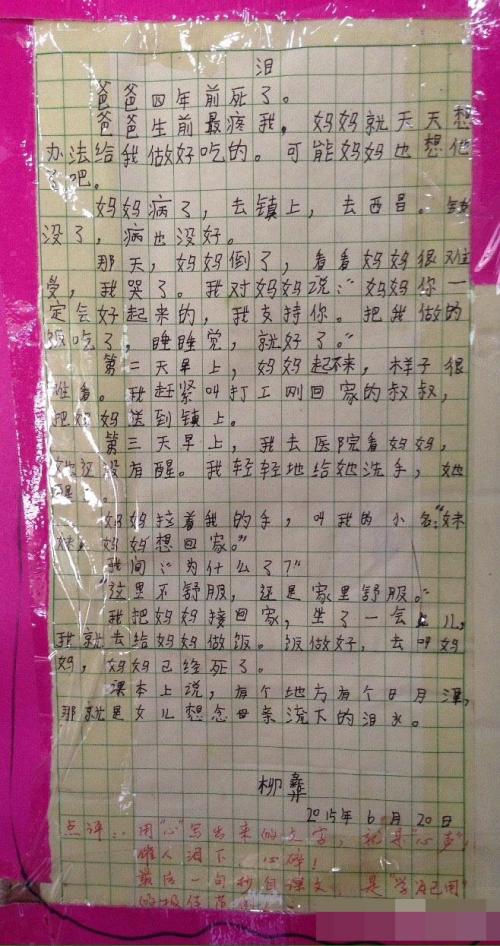 泪
爸爸四年前死了。
爸爸生前最疼我，妈妈就天天想
办法给我做好吃的。可能妈妈也想他
了吧。
妈妈病了，去镇上，去西昌。钱
没了，病也没好。
那天，妈妈倒了，看看妈妈很难
受，我哭了。我对妈妈说：“妈妈你一
定会好起来的，我支持你。把我做的
饭吃了，睡睡觉，就好了。”
第二天早上，妈妈起不来，样子很
难看。我赶紧叫打工刚回家的叔叔，
把妈妈送到镇上。
第三天早上，我去医院看妈妈，
她还没有醒。我轻轻地给她洗手，她
醒了。
妈妈拉着我的手，叫我的小名：“妹
妹，妈妈想回家。”
我问：“为什么了？”
“这里不舒服，还是家里舒服。”
我把妈妈接回家，坐了一会儿，
我就去给妈妈做饭。饭做好，去叫妈
妈，妈妈已经死了。
课本上说，有个地方有个日月潭，
那就是女儿想念母亲流下的泪水。
柳彝
2015年6月20日
点评：用“心”写出来的文字，就是“心声”，
催人泪下，心碎！
最后一句抄自课文，是“学为己用”
的